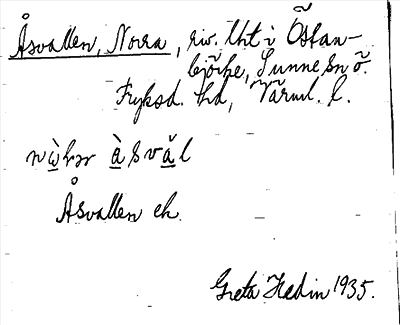 Åsvallen, Norra, riv. lht i Östan-
björke, Sunne sn ö.
Fryksd. hd, Värml. l.
àsvål
Åsvallen ek.
Greta Hedin 1935.